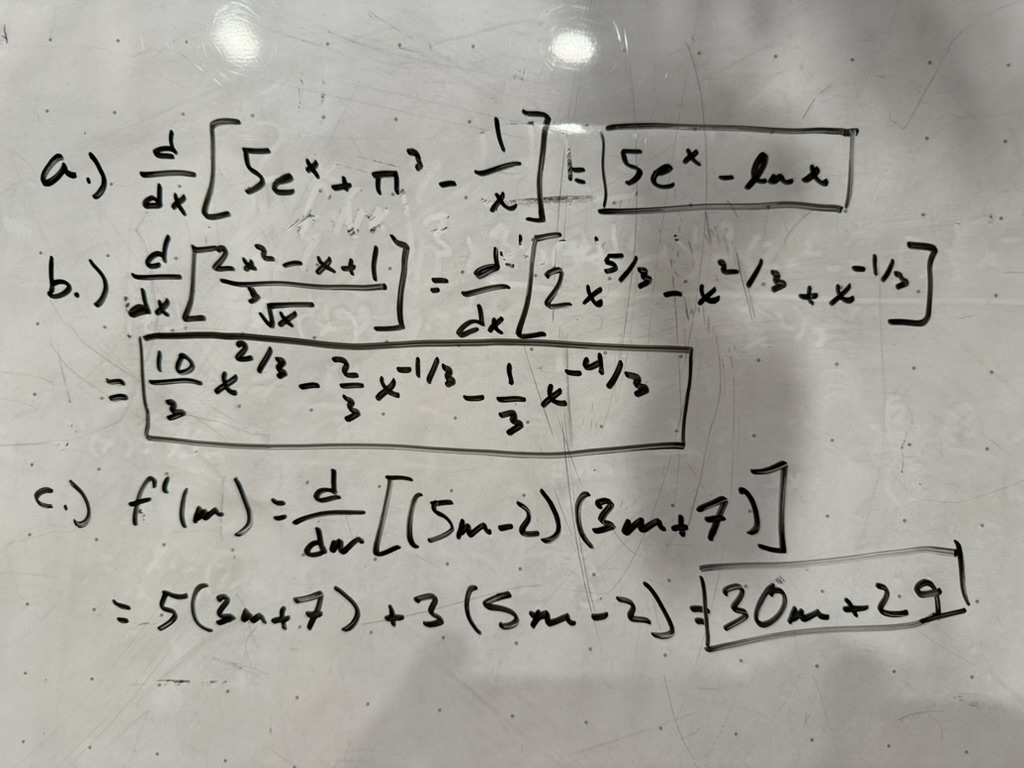 a.) d/dx [5e^x + π^3 - 1/x] = 5e^x - ln x
b.) d/dx [(2x^2 - x + 1)/∛x] = d/dx [2x^(5/3) - x^(2/3) + x^(-1/3)]
= 10/3 x^(2/3) - 2/3 x^(-1/3) - 1/3 x^(-4/3)
c.) f'(m) = d/dm [(5m-2)(3m+7)]
= 5(3m+7) + 3(5m-2) = 30m + 29